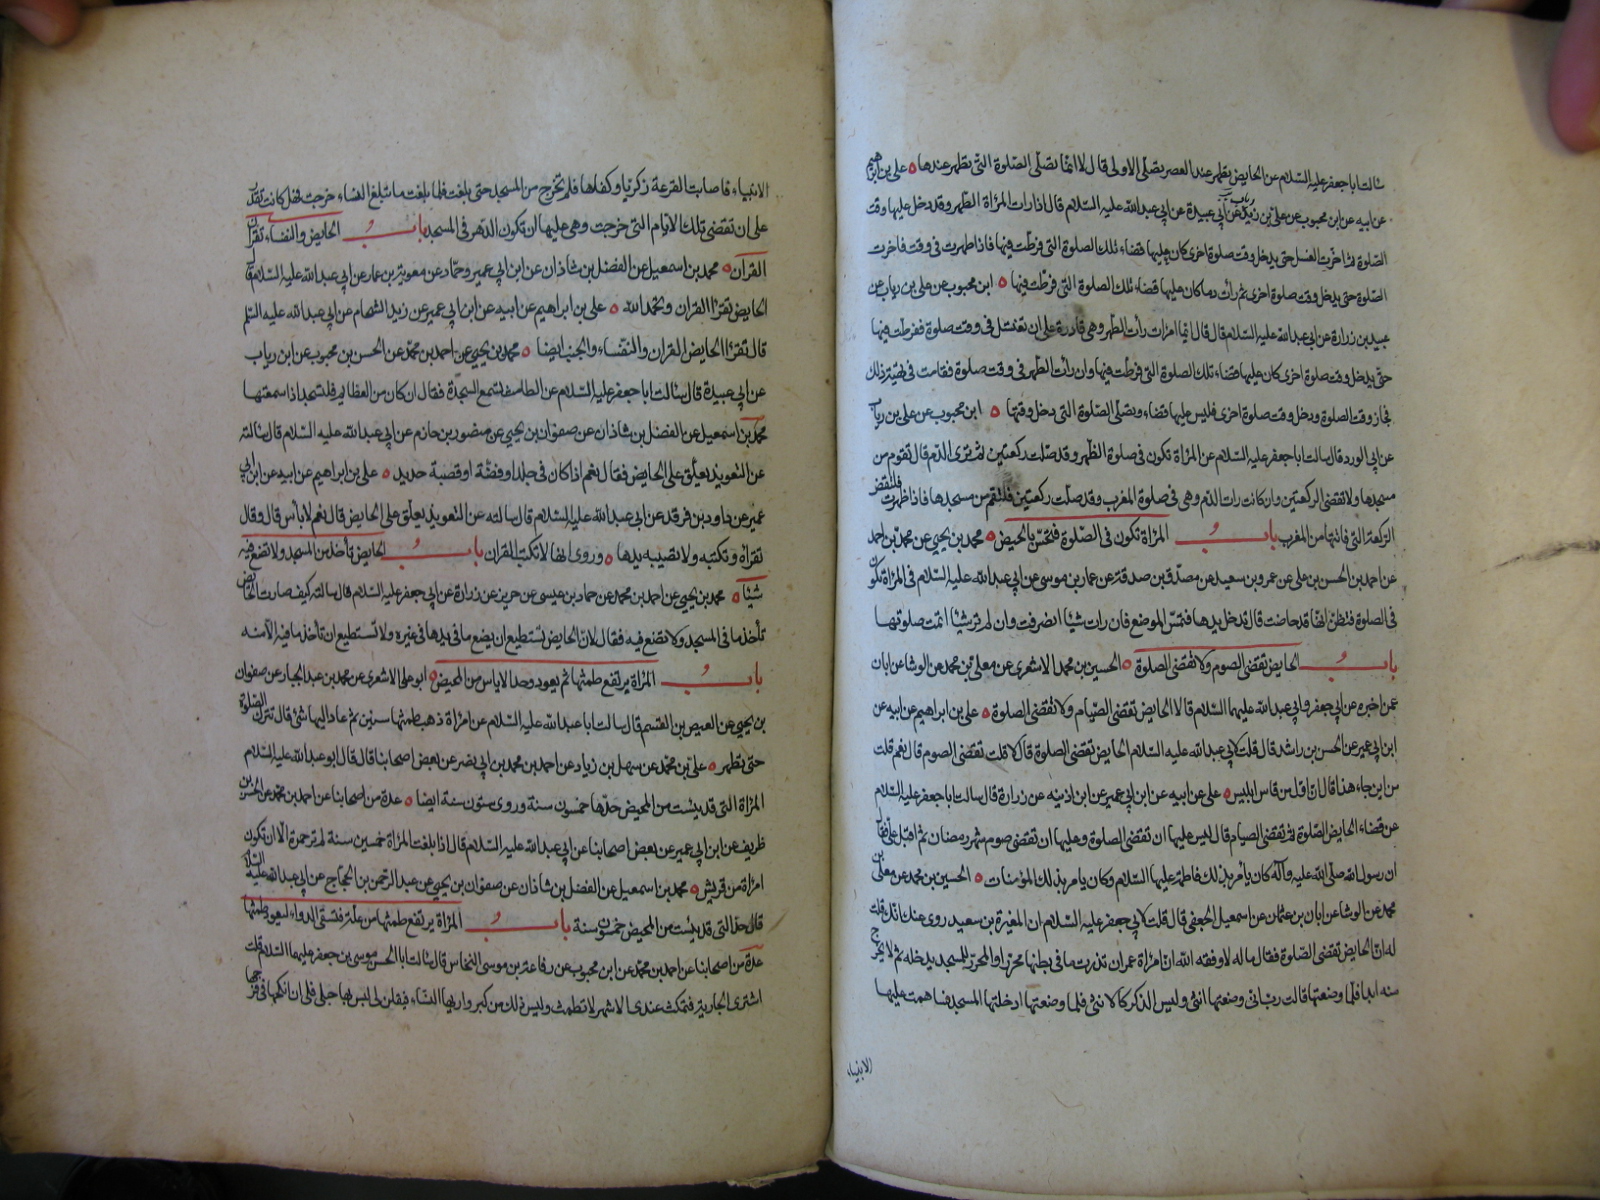 سالت ابا جعفر عليه السلام عن الحايض تطهر عند العصر تصلى الاولى قال لا انما تصلى الصلوة التى تطهر عندها ه على بن ابرهيم
عن ابيه عن ابن محبوب عن على بن رياب عن ابى عبيدة عن ابى عبد الله عليه السلام قال اذا رات المراة الطهر وقد دخل عليها وقت
الصلوة ثم اخرت الغسل حتى يدخل وقت صلوة اخرى كان عليها قضاء تلك الصلوة التى فرطت فيها فاذا طهرت فى وقت فاخرت
الصلوة حتى يدخل وقت صلوة اخرى ثم رات دما كان عليها قضاء تلك الصلوة التى فرطت فيها ه ابن محبوب عن على بن رياب عن
عبيد بن زرارة عن ابى عبد الله عليه السلام قال قال ايما امراة رات الطهر وهى قادرة على ان تغتسل فى وقت صلوة ففرطت فيها
حتى يدخل وقت صلوة اخرى كان عليها قضاء تلك الصلوة التى فرطت فيها وان رات الطهر فى وقت صلوة فقامت فى تهيئة ذلك
فجاز وقت الصلوة ودخل وقت صلوة اخرى فليس عليها قضاء وتصلى الصلوة التى دخل وقتها ه ابن محبوب عن على بن رياب
عن ابى الورد قال سالت ابا جعفر عليه السلام عن المراة تكون فى صلوة الظهر وقد صلت ركعتين ثم ترى الدم قال تقوم من
مسجدها ولا تقضى الركعتين وان كانت رات الدم وهى فى صلوة المغرب وقد صلت ركعتين فلتقم من مسجدها فاذا طهرت فلتقض
الركعة التى فاتتها من المغرب باب المراة تكون فى الصلوة فتحس بالحيض ه محمد بن يحيى عن محمد بن احمد
عن احمد بن الحسن بن على عن عمرو بن سعيد عن مصدق بن صدقة عن عمار بن موسى عن ابى عبد الله عليه السلام فى المراة تكون
فى الصلوة فتظن انها قد حاضت قال تدخل يدها فتمس الموضع فان رات شيئا انصرفت وان لم تر شيئا اتمت صلوتها
باب الحايض تقضى الصوم ولا تقضى الصلوة ه الحسين بن محمد الاشعرى عن معلى بن محمد عن الوشا عن ابان
عمن اخبره عن ابى جعفر وابى عبد الله عليهما السلام قالا الحايض تقضى الصيام ولا تقضى الصلوة ه على بن ابراهيم عن ابيه عن
ابن ابى عمير عن الحسن بن راشد قال قلت لابى عبد الله عليه السلام الحايض تقضى الصلوة قال لا قلت تقضى الصوم قال نعم قلت
من اين جاء هذا قال ان اول من قاس ابليس ه على عن ابيه عن ابن ابى عمير عن ابن اذينه عن زرارة قال سالت ابا جعفر عليه السلام
عن قضاء الحايض الصلوة ثم تقضى الصيام قال ليس عليها ان تقضى الصلوة وعليها ان تقضى صوم شهر رمضان ثم اقبل على فقال
ان رسول الله صلى الله عليه وآله كان يأمر بذلك فاطمة عليها السلام وكان يامر بذلك المؤمنات ه الحسين بن محمد عن معلى بن
محمد عن الوشا عن ابان بن عثمان عن اسمعيل الجعفى قال قلت لابى جعفر عليه السلام ان المغيرة بن سعيد روى عنك انك قلت
له ان الحايض تقضى الصلوة فقال ما له لا وفقه الله ان امراة عمران نذرت ما فى بطنها محررا والمحرر للمسجد يدخله ثم لا يخرج
منه ابدا فلما وضعتها قالت رب انى وضعتها انثى وليس الذكر كالانثى فلما وضعتها ادخلتها المسجد فساهمت عليها
الانبياء
الانبياء فاصابت القرعة زكريا وكفلها فلم تخرج من المسجد حتى بلغت فلما بلغت ما تبلغ النساء خرجت فهل كانت تقدر
على ان تقضى تلك الايام التى خرجت وهى عليها ان تكون الدهر فى المسجد باب الحايض والنفساء تقران
القران ه محمد بن اسمعيل عن الفضل بن شاذان عن ابن ابى عمير وحماد عن معوية بن عمار عن ابى عبد الله عليه السلام قال
الحايض تقرا القران وتحمد الله ه على بن ابراهيم عن ابيه عن ابن ابى عمير عن زيد الشحام عن ابى عبد الله عليه السلم
قال تقرا الحايض القران والنفساء والجنب ايضا ه محمد بن يحيى عن احمد بن محمد عن الحسن بن محبوب عن ابن رياب
عن ابى عبيدة قال سالت ابا جعفر عليه السلام عن الطامث تسمع السجدة فقال ان كان من العظايم فلتسجد اذا سمعتها
محمد بن اسمعيل عن الفضل بن شاذان عن صفوان بن يحيى عن منصور بن حازم عن ابى عبد الله عليه السلام قال سالته
عن التعويذ يعلق على الحايض فقال نعم اذا كان فى جلد او فضة او قصبة حديد ه على بن ابراهيم عن ابيه عن ابن ابى
عمير عن داود بن فرقد عن ابى عبد الله عليه السلام قال سالته عن التعويذ يعلق على الحايض قال نعم لا بأس قال وقال
تقرأه وتكتبه ولا تصيبه يدها ه وروى انها لا تكتب القران باب الحايض تأخذ من المسجد ولا تضع فيه
شيئا ه محمد بن يحيى عن احمد بن محمد عن حماد بن عيسى عن حريز عن زرارة عن ابى جعفر عليه السلام قال سالته كيف صارت الحايض
تأخذ ما فى المسجد ولا تضع فيه فقال لان الحايض تستطيع ان تضع ما فى يدها فى غيره ولا تستطيع ان تأخذ ما فيه الا منه
باب المراة يرتفع طمثها ثم يعود وحد الاياس من المحيض ه ابو على الاشعرى عن محمد بن عبد الجبار عن صفوان
بن يحيى عن العيص بن القسم قال سالت ابا عبد الله عليه السلام عن امراة ذهب طمثها سنين ثم عاد اليها شئ قال تترك الصلوة
حتى تطهر ه على بن محمد عن سهل بن زياد عن احمد بن محمد بن ابى نصر عن بعض اصحابنا قال قال ابو عبد الله عليه السلام
المراة التى قد يئست من المحيض حدها خمسون سنة وروى ستون سنة ايضا ه عدة من اصحابنا عن احمد بن محمد عن الحسن بن
ظريف عن ابن ابى عمير عن بعض اصحابنا عن ابى عبد الله عليه السلام قال اذا بلغت المراة خمسين سنة لم تر حمرة الا ان تكون
امراة من قريش ه محمد بن اسمعيل عن الفضل بن شاذان عن صفوان بن يحيى عن عبد الرحمن بن الحجاج عن ابى عبد الله عليه السلام
قال حد التى قد يئست من المحيض خمسون سنة باب المراة يرتفع طمثها من علة فتسقى الدواء ليعود طمثها
عدة من اصحابنا عن احمد بن محمد عن ابن محبوب عن رفاعة بن موسى النخاس قال سالت ابا الحسن موسى بن جعفر عليهما السلام قلت
اشترى الجارية فتمكث عندى الاشهر لا تطمث وليس ذلك من كبر واريها النساء فيقلن لى ليس بها حبل فلى ان انكحها فى فرجها